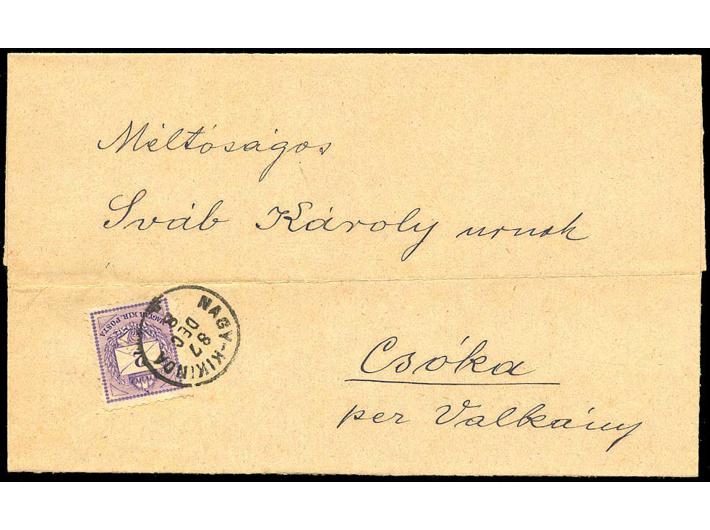 Méltóságos
Sváb Károly urnak
Csóka
per Valkány
NAGY-KIKINDA
87
DEC
MAGYAR KIR. POSTA
2